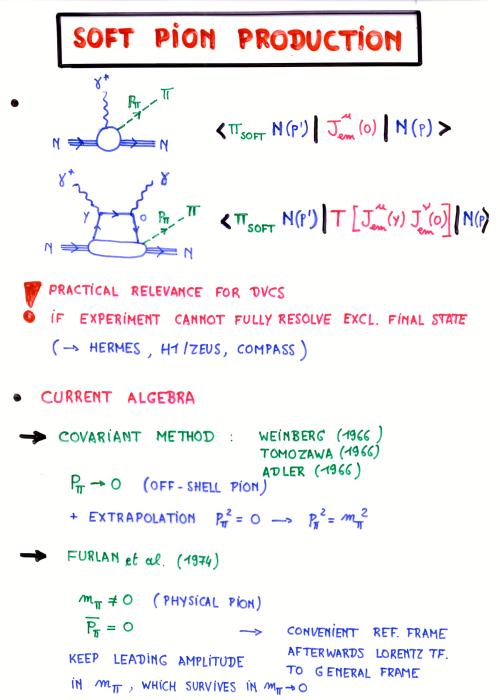 SOFT PION PRODUCTION
γ* P_π π
N N
< π_SOFT N(p') | J^μ_em (0) | N(p) >
γ* γ
y 0 P_π π
N N
< π_SOFT N(p') | T [ J^μ_em (y) J^ν_em (0) ] | N(p) >
! PRACTICAL RELEVANCE FOR DVCS
IF EXPERIMENT CANNOT FULLY RESOLVE EXCL. FINAL STATE
( → HERMES , H1/ZEUS, COMPASS )
• CURRENT ALGEBRA
→ COVARIANT METHOD : WEINBERG (1966)
TOMOZAWA (1966)
ADLER (1966)
P_π → 0 (OFF-SHELL PION)
+ EXTRAPOLATION P_π^2 = 0 → P_π^2 = m_π^2
→ FURLAN et al. (1974)
m_π ≠ 0 ( PHYSICAL PION)
P̅_π = 0 → CONVENIENT REF. FRAME
AFTERWARDS LORENTZ TF.
TO GENERAL FRAME
KEEP LEADING AMPLITUDE
IN m_π , WHICH SURVIVES IN m_π → 0